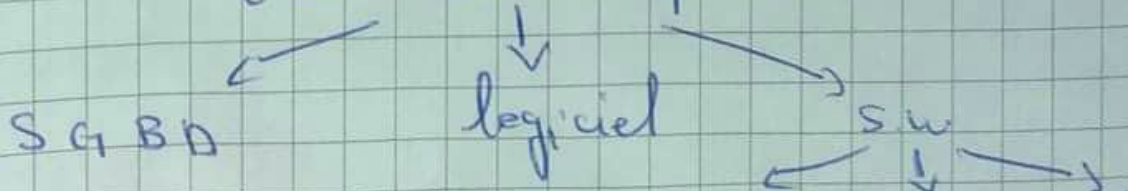 SGBD logiciel SW